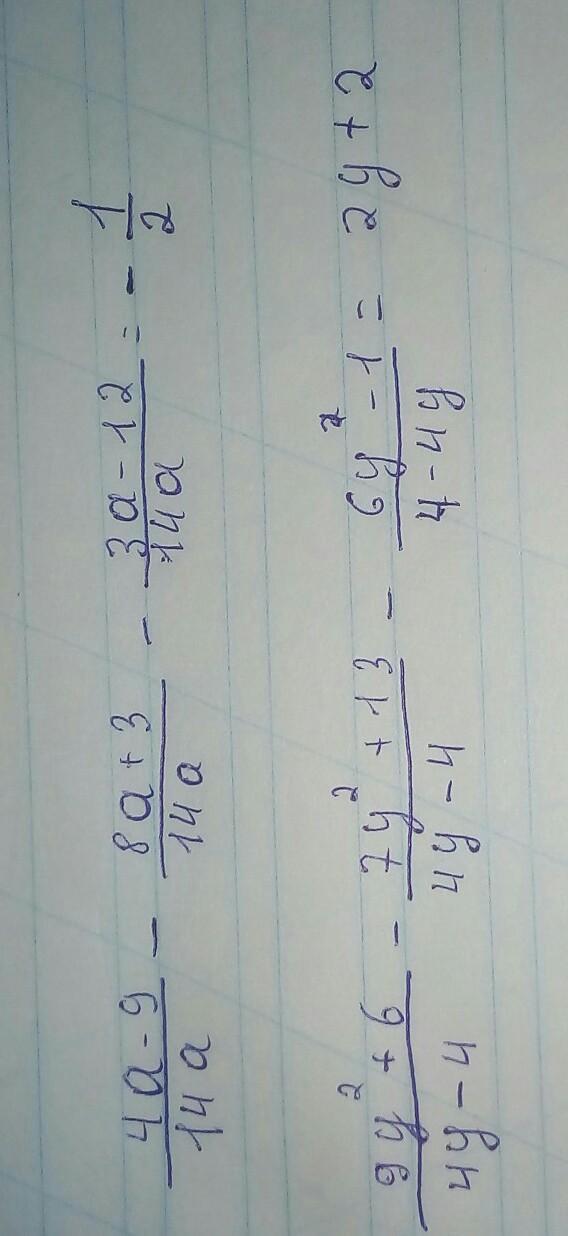 (4a - 9)/(14a) - (8a + 3)/(14a) - (3a - 12)/(14a) = - 1/2
(9y² + 6)/(4y - 4) - (7y² + 13)/(4y - 4) - (6y² - 1)/(4 - 4y) = 2y + 2